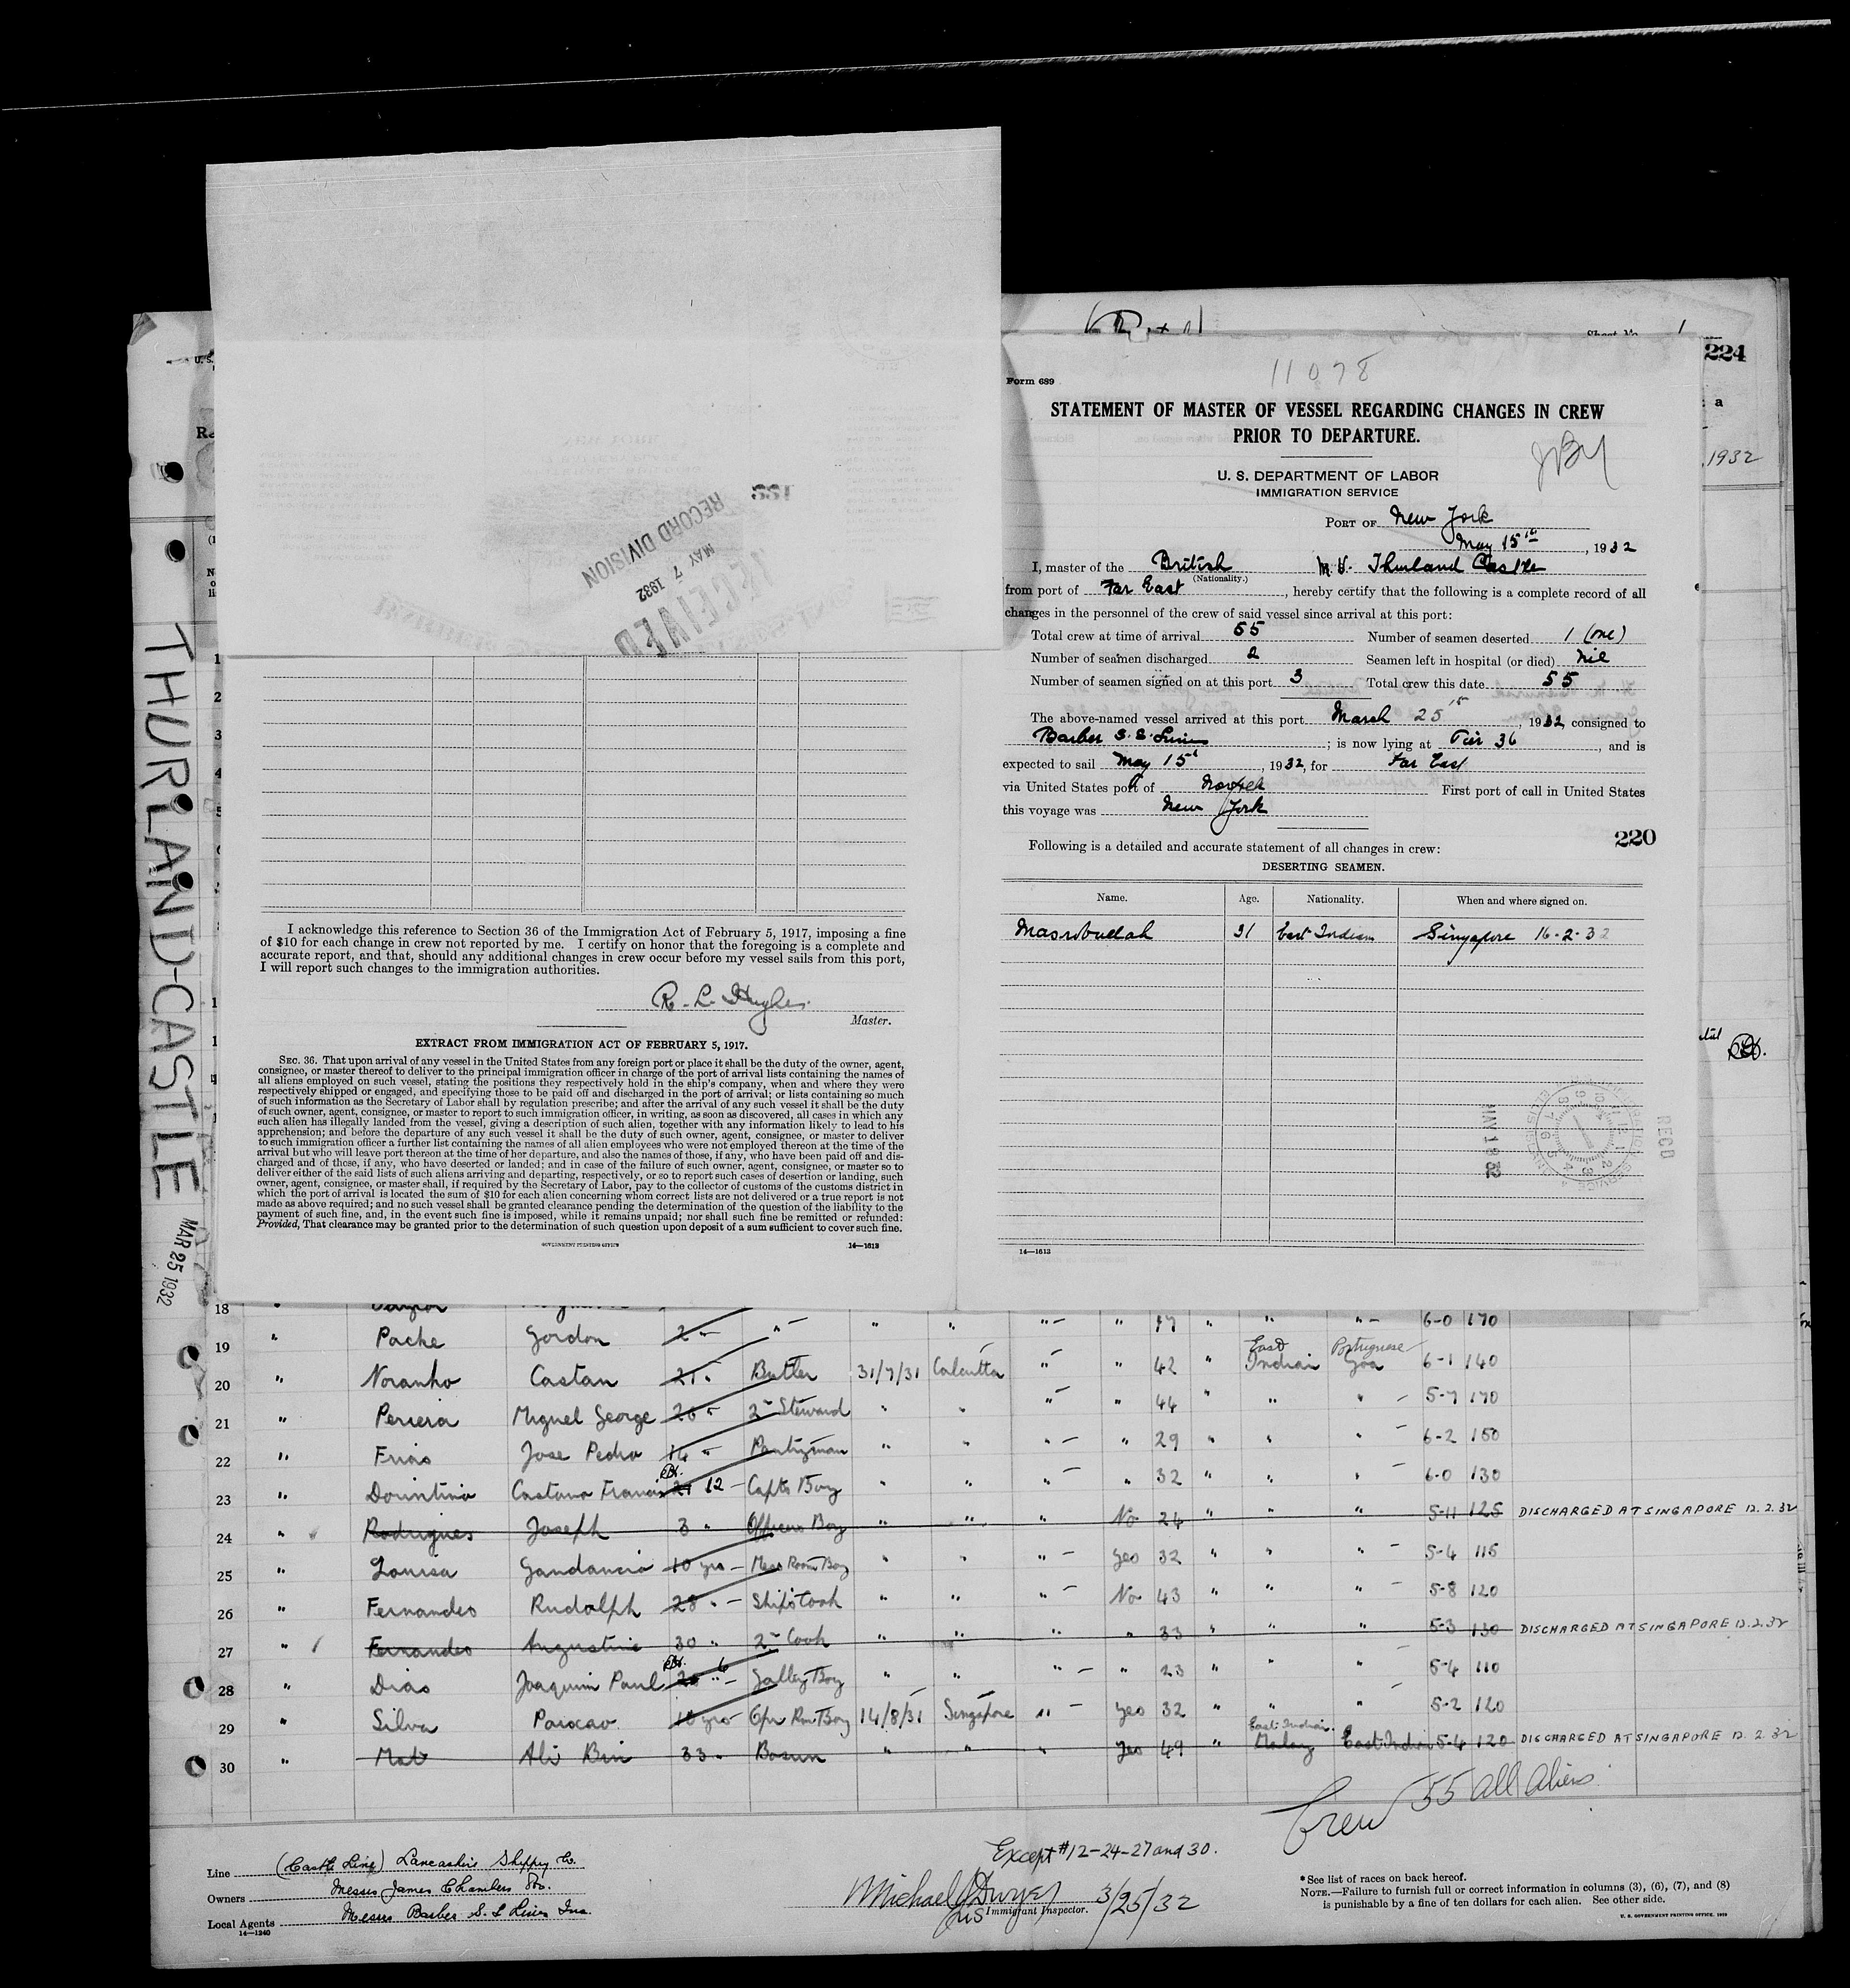 Sheet No. 1
224
a
1932
U. S.
THURLAND-CASTLE
MAR 25 1932
RECEIVED
MAY 7 1932
RECORD DIVISION
I acknowledge this reference to Section 36 of the Immigration Act of February 5, 1917, imposing a fine
of $10 for each change in crew not reported by me. I certify on honor that the foregoing is a complete and
accurate report, and that, should any additional changes in crew occur before my vessel sails from this port,
I will report such changes to the immigration authorities.
R. L. Hughes.
Master.
EXTRACT FROM IMMIGRATION ACT OF FEBRUARY 5, 1917.
SEC. 36. That upon arrival of any vessel in the United States from any foreign port or place it shall be the duty of the owner, agent,
consignee, or master thereof to deliver to the principal immigration officer in charge of the port of arrival lists containing the names of
all aliens employed on such vessel, stating the positions they respectively hold in the ship's company, when and where they were
respectively shipped or engaged, and specifying those to be paid off and discharged in the port of arrival; or lists containing so much
of such information as the Secretary of Labor shall by regulation prescribe; and after the arrival of any such vessel it shall be the duty
of such owner, agent, consignee, or master to report to such immigration officer, in writing, as soon as discovered, all cases in which any
such alien has illegally landed from the vessel, giving a description of such alien, together with any information likely to lead to his
apprehension; and before the departure of any such vessel it shall be the duty of such owner, agent, consignee, or master to deliver
to such immigration officer a further list containing the names of all alien employees who were not employed thereon at the time of the
arrival but who will leave port thereon at the time of her departure, and also the names of those, if any, who have been paid off and dis-
charged and of those, if any, who have deserted or landed; and in case of the failure of such owner, agent, consignee, or master so to
deliver either of the said lists of such aliens arriving and departing, respectively, or so to report such cases of desertion or landing, such
owner, agent, consignee, or master shall, if required by the Secretary of Labor, pay to the collector of customs of the customs district in
which the port of arrival is located the sum of $10 for each alien concerning whom correct lists are not delivered or a true report is not
made as above required; and no such vessel shall be granted clearance pending the determination of the question of the liability to the
payment of such fine, and, in the event such fine is imposed, while it remains unpaid; nor shall such fine be remitted or refunded:
Provided, That clearance may be granted prior to the determination of such question upon deposit of a sum sufficient to cover such fine.
GOVERNMENT PRINTING OFFICE 14—1613
11078
Form 689
STATEMENT OF MASTER OF VESSEL REGARDING CHANGES IN CREW
PRIOR TO DEPARTURE.
U. S. DEPARTMENT OF LABOR
IMMIGRATION SERVICE
PORT OF New York
May 15th, 1932
I, master of the British M.V. Thurland Castle
(Nationality.)
from port of Far East, hereby certify that the following is a complete record of all
changes in the personnel of the crew of said vessel since arrival at this port:
Total crew at time of arrival 55 Number of seamen deserted 1 (one)
Number of seamen discharged 2 Seamen left in hospital (or died) Nil
Number of seamen signed on at this port 3 Total crew this date 55
The above-named vessel arrived at this port March 25th, 1932 consigned to
Barber S.S. Lines; is now lying at Pier 36, and is
expected to sail May 15t, 1932, for Far East
via United States port of Norfolk First port of call in United States
this voyage was New York
220
Following is a detailed and accurate statement of all changes in crew:
DESERTING SEAMEN.
Name. Age. Nationality. When and where signed on.
Masrobullah 31 East Indian Singapore 16-2-32
REC'D
MAY 18 32
14—1613
18 " 6-0 170
19 " Pache Gordon 2 " " " " " " 17 " " "
20 " Noranho Castan 21 " Butler 31/7/31 Calcutta " " 42 " East Indian Portuguese Goa 6-1 140
21 " Pereira Miguel George 26 " 2nd Steward " " " " 44 " " " 5-7 170
22 " Frias Jose Pedro 14 " Pantryman " " " " 29 " " " 6-2 150
23 " Castano Francis 21 12 Capts Boy " " " " 32 " " " 6-0 130
24 " Rodrigues Joseph 3 " Officers Boy " " " No 24 " " " 5-11 125 DISCHARGED AT SINGAPORE 12.2.32
25 " Louisa Gandancio 10 yrs Mess Room Boy " " " Yes 32 " " " 5-4 115
26 " Fernandes Rudolph 28 " Ship's Cook " " " No 43 " " " 5-8 120
27 " Fernandes Augustine 30 " 2nd Cook " " " " 33 " " " 5-3 130 DISCHARGED AT SINGAPORE 12.2.32
28 " Dias Joaquim Paul 6 Galley Boy " " " " 23 " " " 5-4 110
29 " Silva Paixcao 10 yrs Boy 14/8/31 Singapore " Yes 32 " " " 5-2 120
30 " Mat Ali Bin 33 " Bosun " " " Yes 49 " East Indian Malay East Indian 5-4 120 DISCHARGED AT SINGAPORE 12.2.32
Crew 55 all aliens
Except #12-24-27 and 30.
Line (Castle Line) Lancashire Shipping Co.
Owners Messrs James Chambers & Co.
Local Agents Messrs Barber S. S. Lines Inc.
14—1240
Michael J Dwyer 3/25/32
Immigrant Inspector.
*See list of races on back hereof.
NOTE.—Failure to furnish full or correct information in columns (3), (6), (7), and (8)
is punishable by a fine of ten dollars for each alien. See other side.
U. S. GOVERNMENT PRINTING OFFICE, 1929